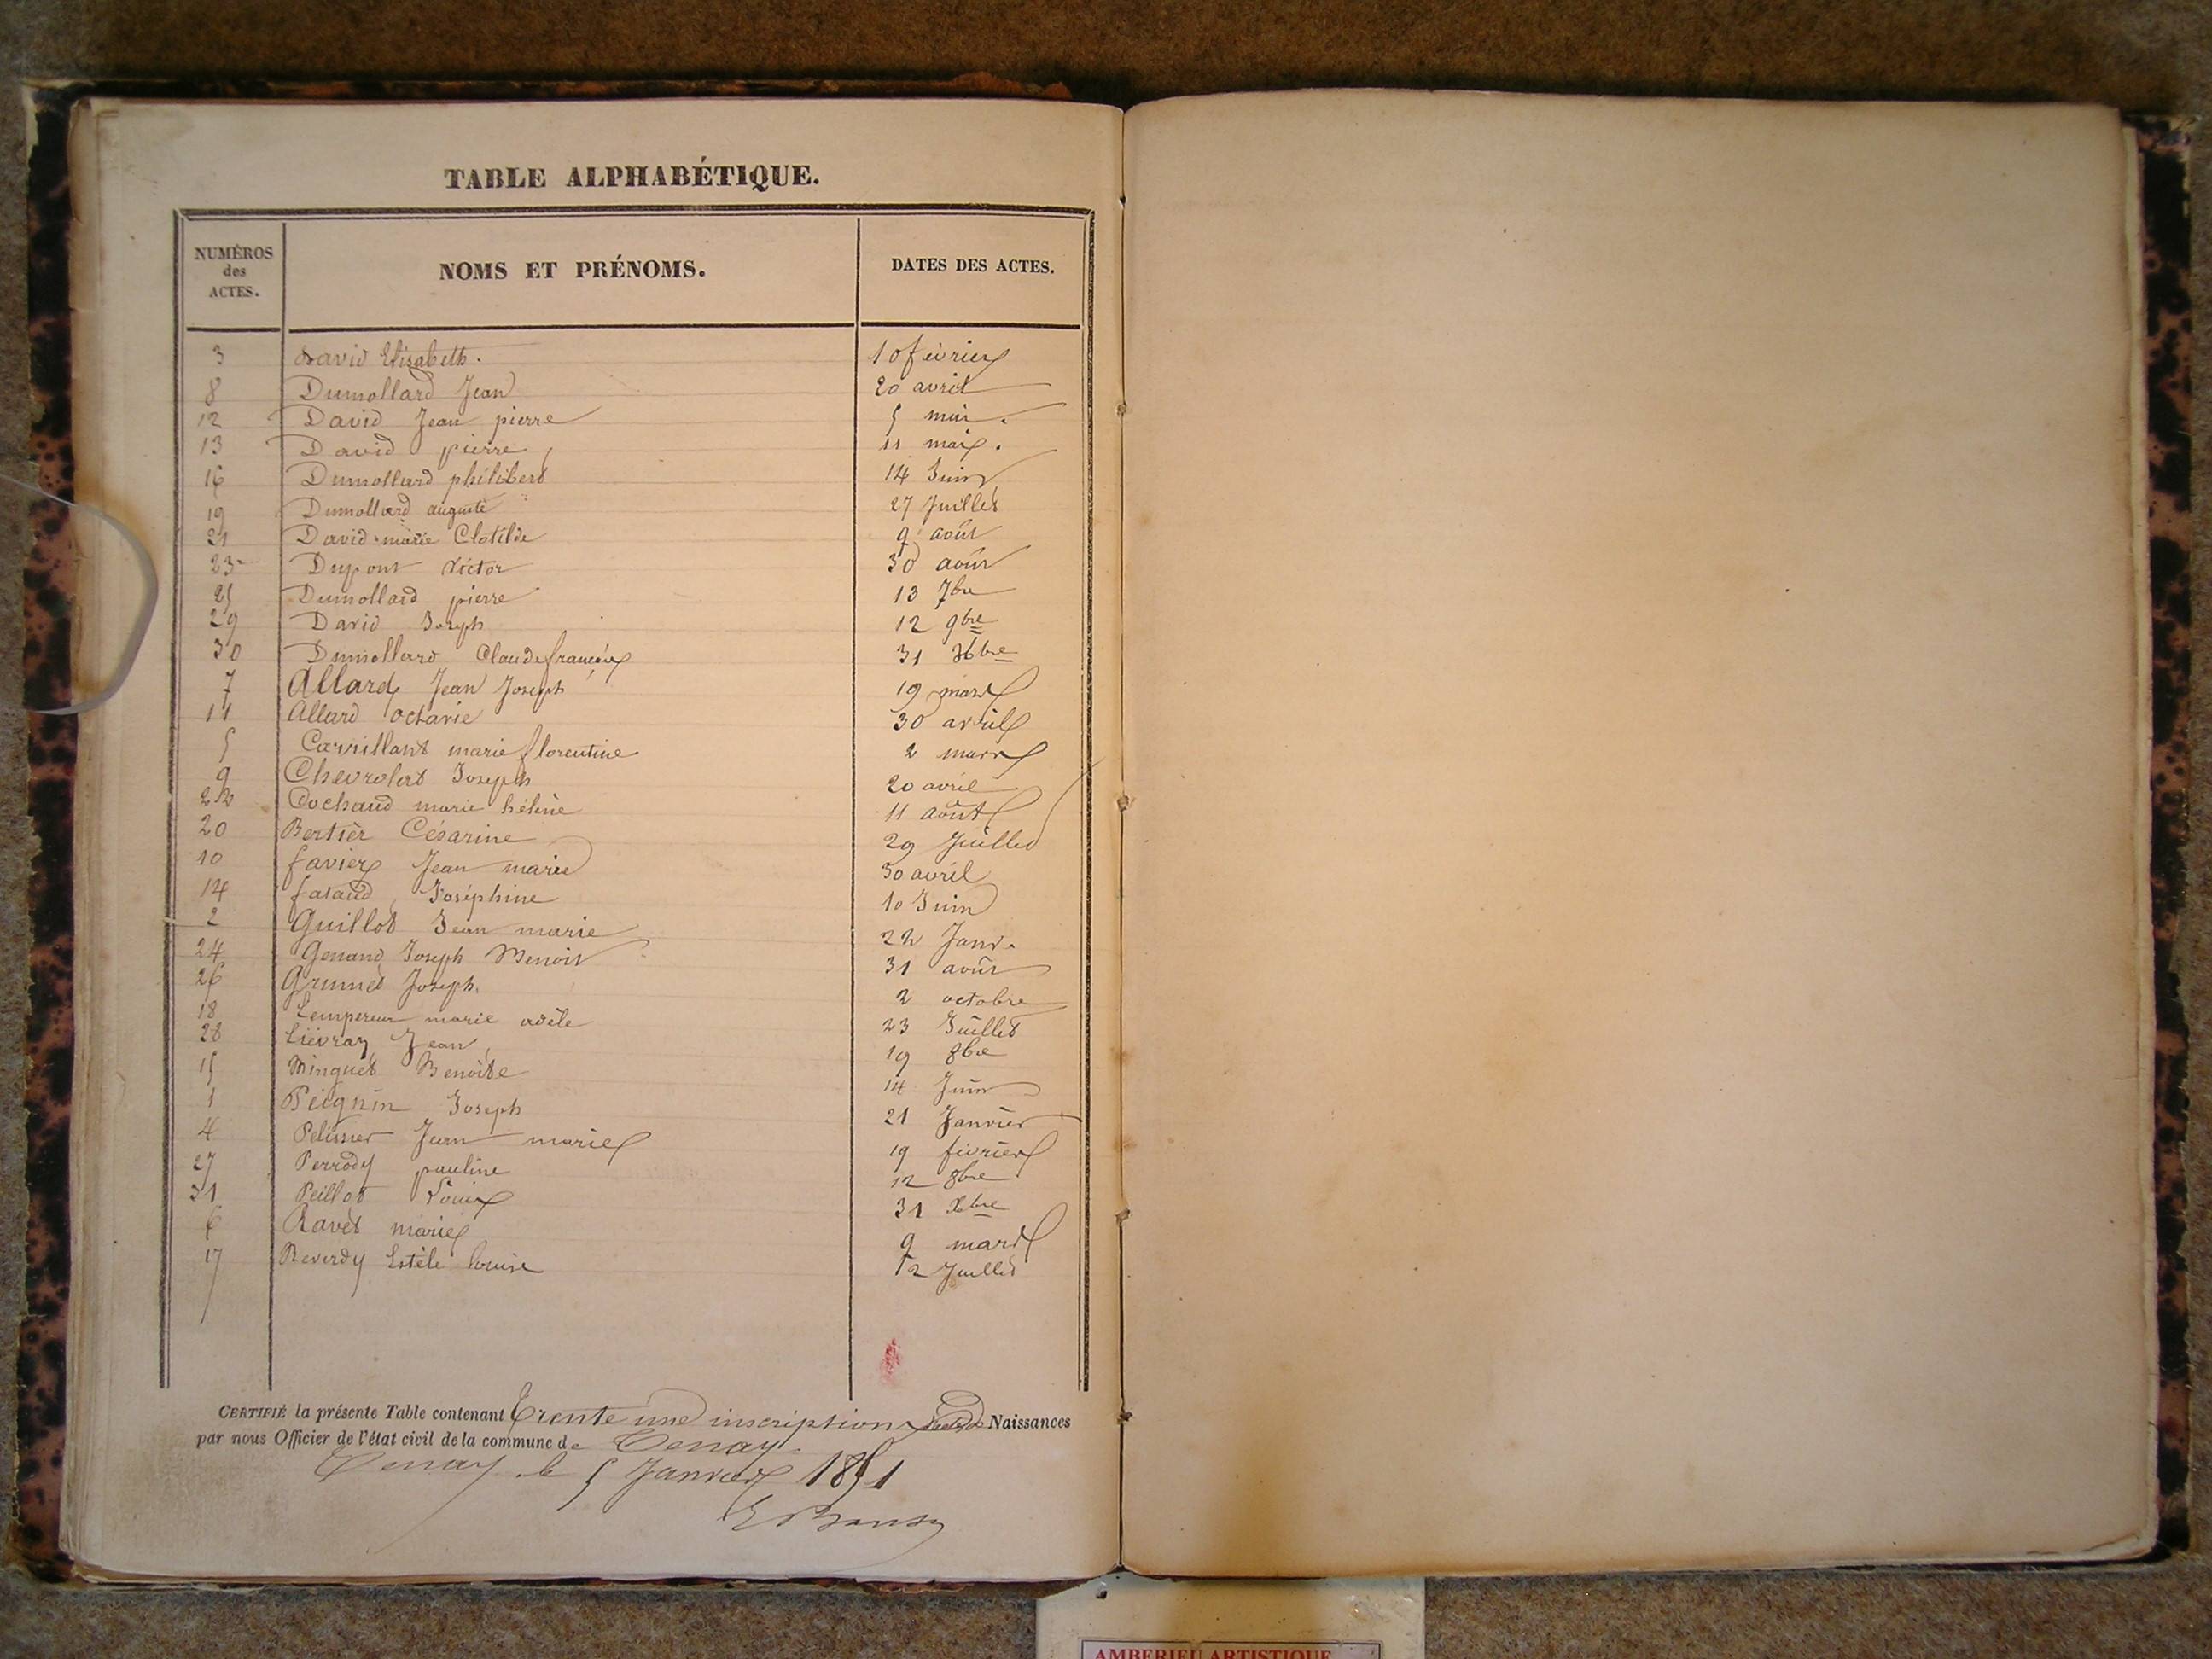 TABLE ALPHABÉTIQUE.
NUMÉROS des ACTES. NOMS ET PRÉNOMS. DATES DES ACTES.
3 David Elisabeth. 10 février
8 Dumollard Jean 20 avril
12 David Jean pierre 5 mai.
13 David pierre 11 mai.
16 Dumollard philibert 14 Juin
19 Dumollard auguste 27 Juillet
21 David marie Clotilde 9 août
23 Dupont Victor 30 août
25 Dumollard pierre 13 7bre
29 David Joseph 12 9bre
30 Dumollard Claude françois 31 Xbre
7 Allard Jean Joseph 19 mars
11 Allard octavie 30 avril
5 Carrillant marie florentine 2 mars
9 Chevrolat Joseph 20 avril
22 Cochaud marie hélène 11 août
20 Bertier Césarine 29 Juillet
10 favier Jean marie 30 avril
14 fataud Joséphine 10 Juin
2 Guillot Jean marie 22 Janv.
24 Genand Joseph Benoit 31 août
26 Grumet Joseph. 2 octobre
18 Lempereur marie adèle 23 Juillet
28 Lievray Jean 19 8bre
15 Minguet Benoîte 14 Juin
1 Peignin Joseph 21 Janvier
4 Pelissier Jean marie 19 février
27 Perrody pauline 12 8bre
31 Peillot Louis 31 Xbre
6 Ravet marie 9 mars
17 Reverdy Estèle louise 12 Juillet
CERTIFIÉ la présente Table contenant Trente une inscriptions d'actes de Naissances
par nous Officier de l'état civil de la commune de Tenay
Tenay le 5 Janvier 1851
AMBERIEU ARTISTIQUE